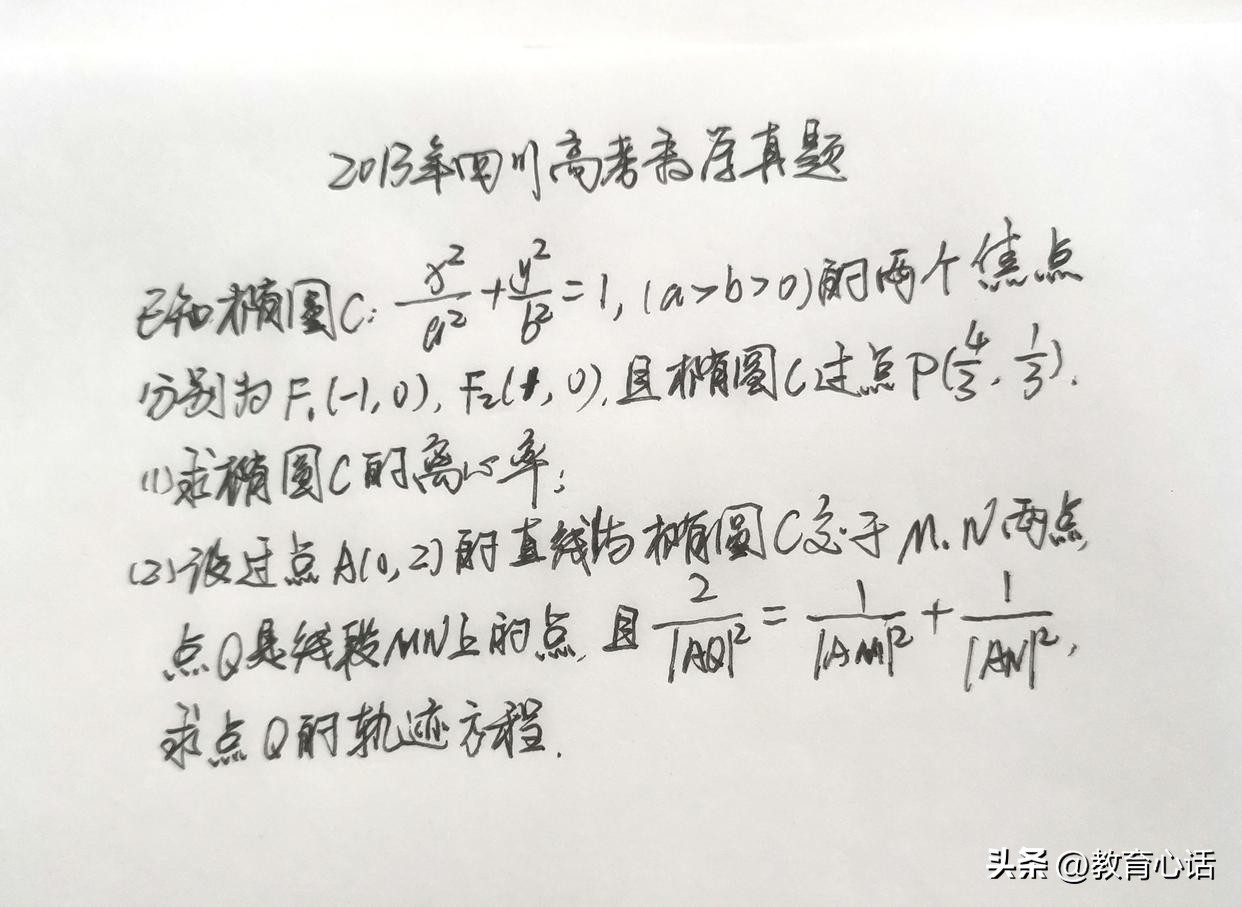 2013年四川高考数学真题
已知椭圆C: x²/a² + y²/b² = 1, (a>b>0)的两个焦点
分别为F₁(-1,0), F₂(1,0),且椭圆C过点P(4/3, 1/3).
(1)求椭圆C的离心率;
(2)设过点A(0,2)的直线与椭圆C交于M、N两点,
点Q是线段MN上的点,且 2/|AQ|² = 1/|AM|² + 1/|AN|²,
求点Q的轨迹方程.
头条 @教育心话